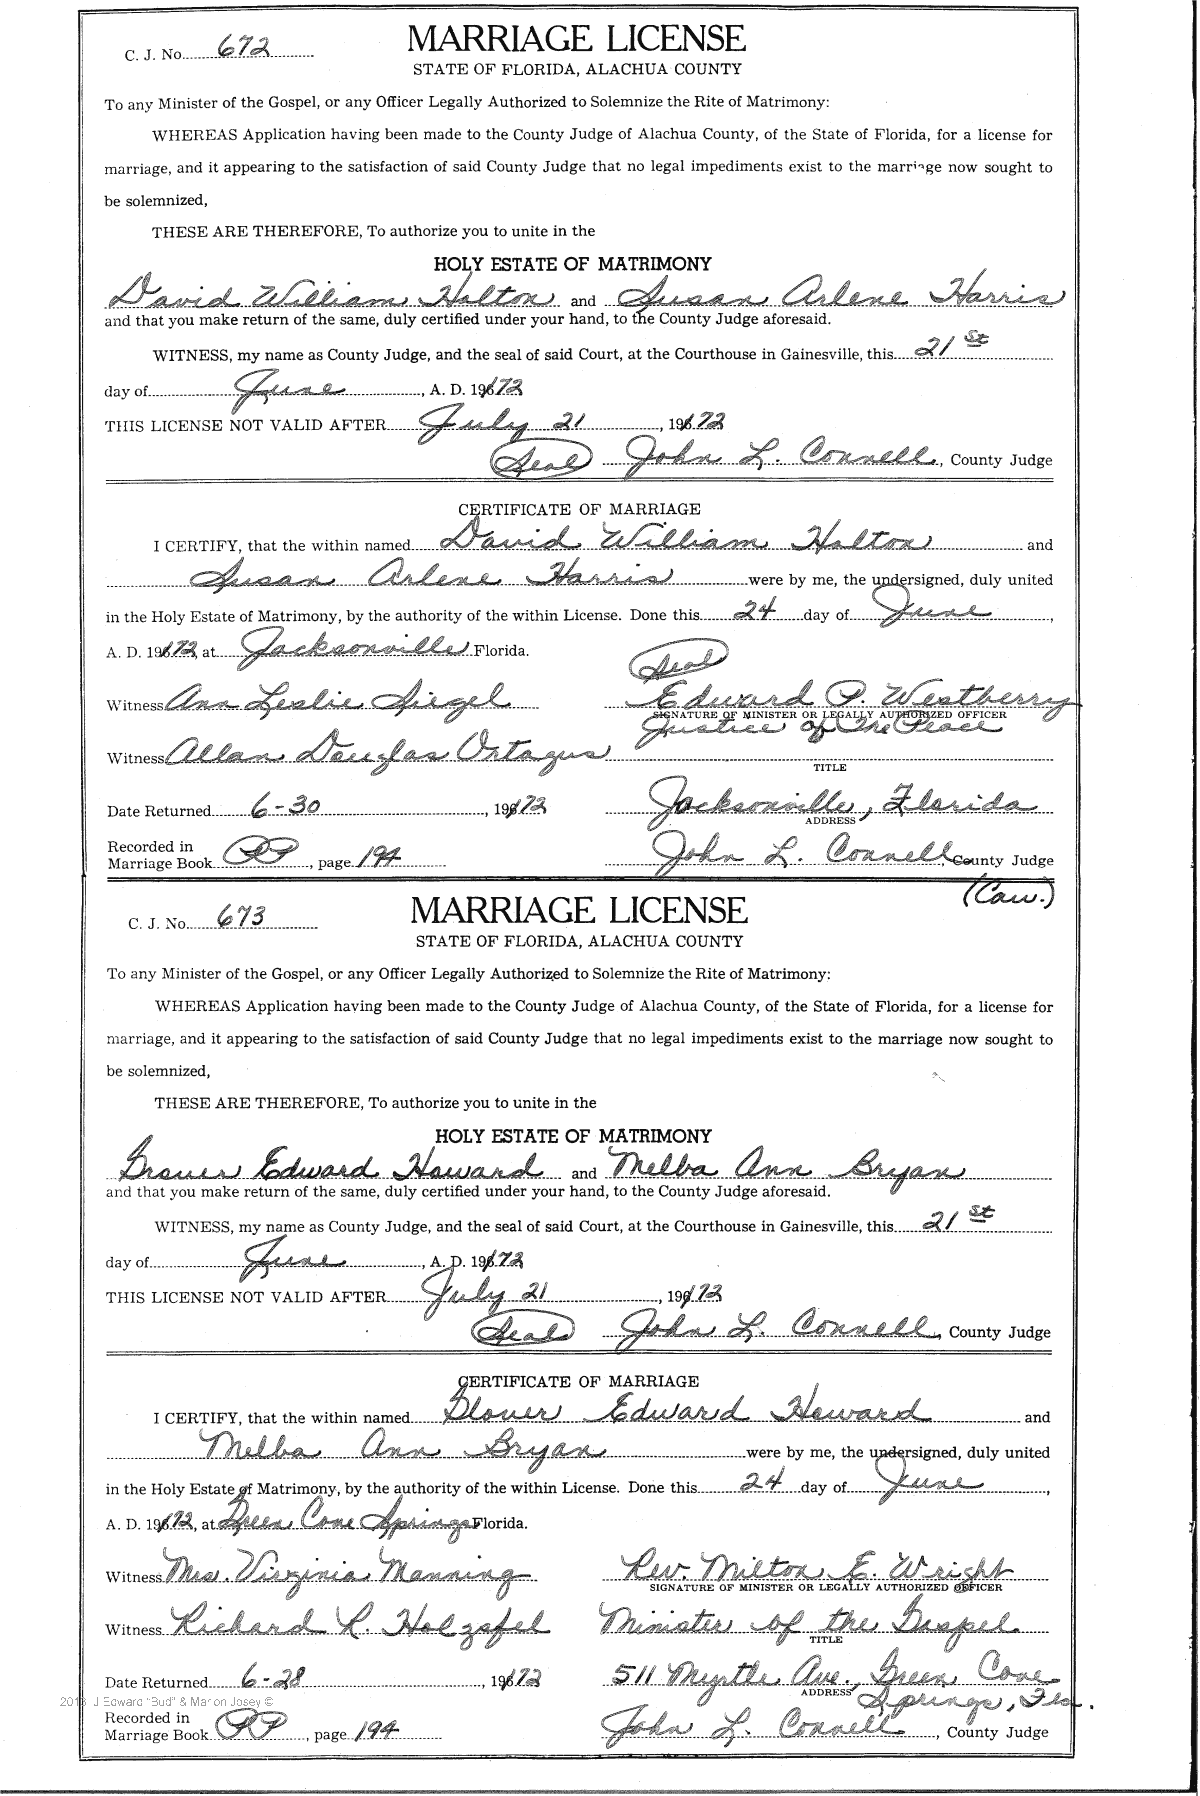 C. J. No. 672
MARRIAGE LICENSE
STATE OF FLORIDA, ALACHUA COUNTY
To any Minister of the Gospel, or any Officer Legally Authorized to Solemnize the Rite of Matrimony:
WHEREAS Application having been made to the County Judge of Alachua County, of the State of Florida, for a license for
marriage, and it appearing to the satisfaction of said County Judge that no legal impediments exist to the marriage now sought to
be solemnized,
THESE ARE THEREFORE, To authorize you to unite in the
HOLY ESTATE OF MATRIMONY
David William Holton and Susan Arlene Harris
and that you make return of the same, duly certified under your hand, to the County Judge aforesaid.
WITNESS, my name as County Judge, and the seal of said Court, at the Courthouse in Gainesville, this 21st
day of June, A. D. 1972
THIS LICENSE NOT VALID AFTER July 21, 1972
(Seal) John L. Connell, County Judge
CERTIFICATE OF MARRIAGE
I CERTIFY, that the within named David William Holton and
Susan Arlene Harris were by me, the undersigned, duly united
in the Holy Estate of Matrimony, by the authority of the within License. Done this 24 day of June,
A. D. 1972, at Jacksonville Florida.
(Seal)
Witness Ann Leslie Siegel Edward P. Westberry
SIGNATURE OF MINISTER OR LEGALLY AUTHORIZED OFFICER
Justice of The Peace
Witness Allan Douglas Ortagus
TITLE
Date Returned 6-30, 1972 Jacksonville, Florida
ADDRESS
Recorded in
Marriage Book PP, page 194 John L. Connell, County Judge
(Caw.)
C. J. No. 673
MARRIAGE LICENSE
STATE OF FLORIDA, ALACHUA COUNTY
To any Minister of the Gospel, or any Officer Legally Authorized to Solemnize the Rite of Matrimony:
WHEREAS Application having been made to the County Judge of Alachua County, of the State of Florida, for a license for
marriage, and it appearing to the satisfaction of said County Judge that no legal impediments exist to the marriage now sought to
be solemnized,
THESE ARE THEREFORE, To authorize you to unite in the
HOLY ESTATE OF MATRIMONY
Grover Edward Howard and Melba Ann Bryan
and that you make return of the same, duly certified under your hand, to the County Judge aforesaid.
WITNESS, my name as County Judge, and the seal of said Court, at the Courthouse in Gainesville, this 21st
day of June, A. D. 1972
THIS LICENSE NOT VALID AFTER July 21, 1972
(Seal) John L. Connell, County Judge
CERTIFICATE OF MARRIAGE
I CERTIFY, that the within named Glover Edward Howard and
Melba Ann Bryan were by me, the undersigned, duly united
in the Holy Estate of Matrimony, by the authority of the within License. Done this 24 day of June,
A. D. 1972, at Green Cove Springs Florida.
Witness Mrs. Virginia Manning Rev. Milton E. Wright
SIGNATURE OF MINISTER OR LEGALLY AUTHORIZED OFFICER
Witness Richard R. Holzafel Minister of the Gospel
TITLE
Date Returned 6-28, 1972 511 Myrtle Ave. Green Cove
ADDRESS Springs, Fla.
J Edward "Bud" & Marion Josey ©
Recorded in
Marriage Book PP, page 194 John L. Connell, County Judge